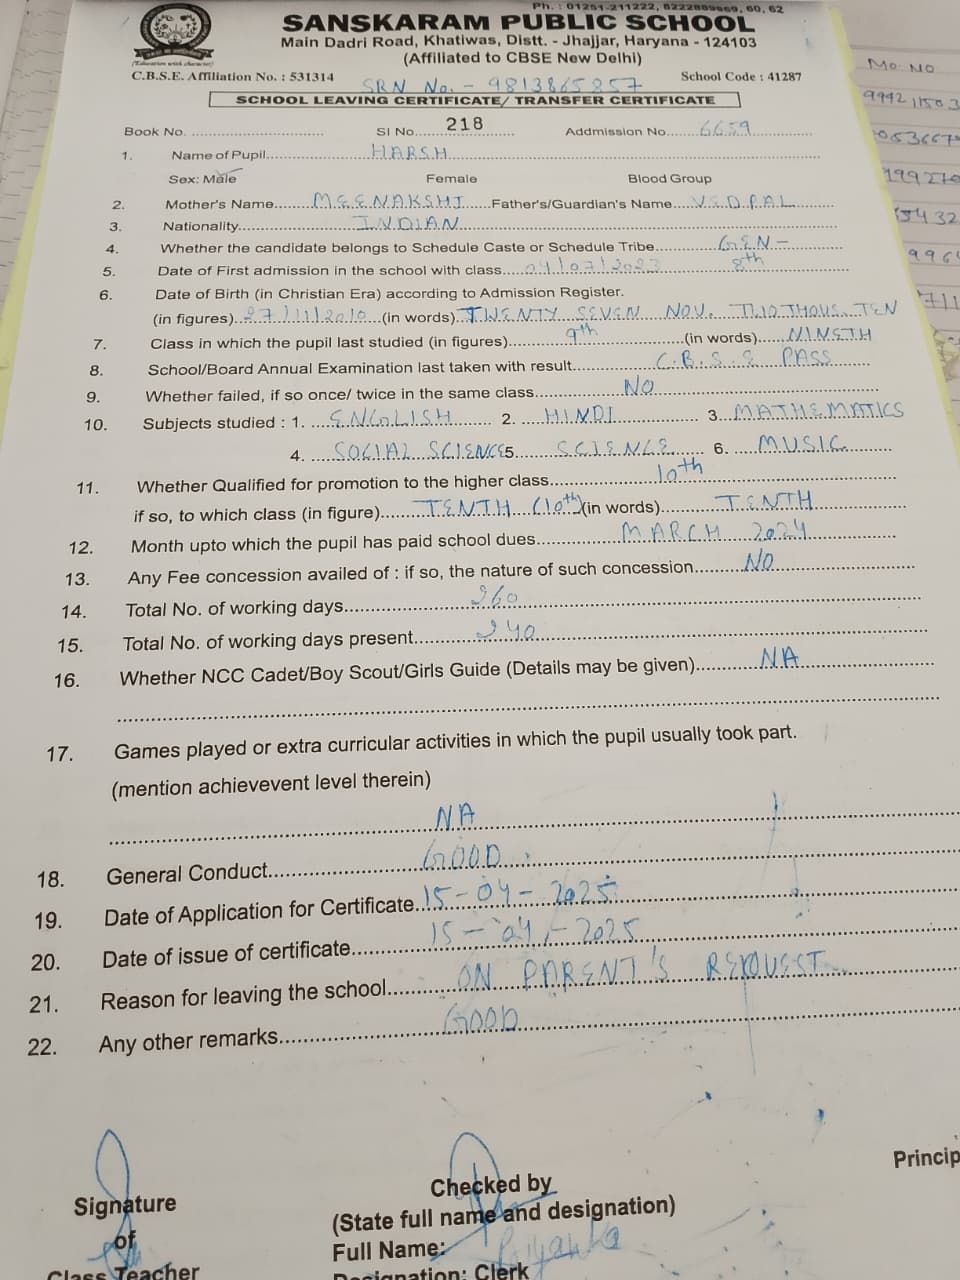 Ph. : 01251-211222, 8222889669, 60, 62
SANSKARAM PUBLIC SCHOOL
Main Dadri Road, Khatiwas, Distt. - Jhajjar, Haryana - 124103
(Affiliated to CBSE New Delhi)
(Education with character)
C.B.S.E. Affiliation No. : 531314 School Code : 41287
SRN No. - 9813865857
SCHOOL LEAVING CERTIFICATE/ TRANSFER CERTIFICATE
Book No. SI No. 218 Addmission No. 6659
1. Name of Pupil HARSH
Sex: Male Female Blood Group
2. Mother's Name MEENAKSHI Father's/Guardian's Name VEDPAL
3. Nationality INDIAN
4. Whether the candidate belongs to Schedule Caste or Schedule Tribe GEN -
5. Date of First admission in the school with class 04/07/2023 8th
6. Date of Birth (in Christian Era) according to Admission Register.
(in figures) 27/11/2010 (in words) TWENTY SEVEN NOV. TWO THOUS. TEN
7. Class in which the pupil last studied (in figures) 9th (in words) NINETH
8. School/Board Annual Examination last taken with result C.B.S.E PASS
9. Whether failed, if so once/ twice in the same class NO
10. Subjects studied : 1. ENGLISH 2. HINDI 3. MATHEMATICS
4. SOCIAL SCIENCE 5. SCIENCE 6. MUSIC
11. Whether Qualified for promotion to the higher class 10th
if so, to which class (in figure) TENTH (10th) (in words) TENTH
12. Month upto which the pupil has paid school dues MARCH 2024
13. Any Fee concession availed of : if so, the nature of such concession NO
14. Total No. of working days 260
15. Total No. of working days present 240
16. Whether NCC Cadet/Boy Scout/Girls Guide (Details may be given) NA
17. Games played or extra curricular activities in which the pupil usually took part.
(mention achievevent level therein)
NA
18. General Conduct GOOD
19. Date of Application for Certificate 15-04-2025
20. Date of issue of certificate 15-04-2025
21. Reason for leaving the school ON PARENT'S REQUEST
22. Any other remarks GOOD
Signature
of
Class Teacher
Checked by
(State full name and designation)
Full Name: Priyanka
Designation: Clerk
Princip
Mo. NO